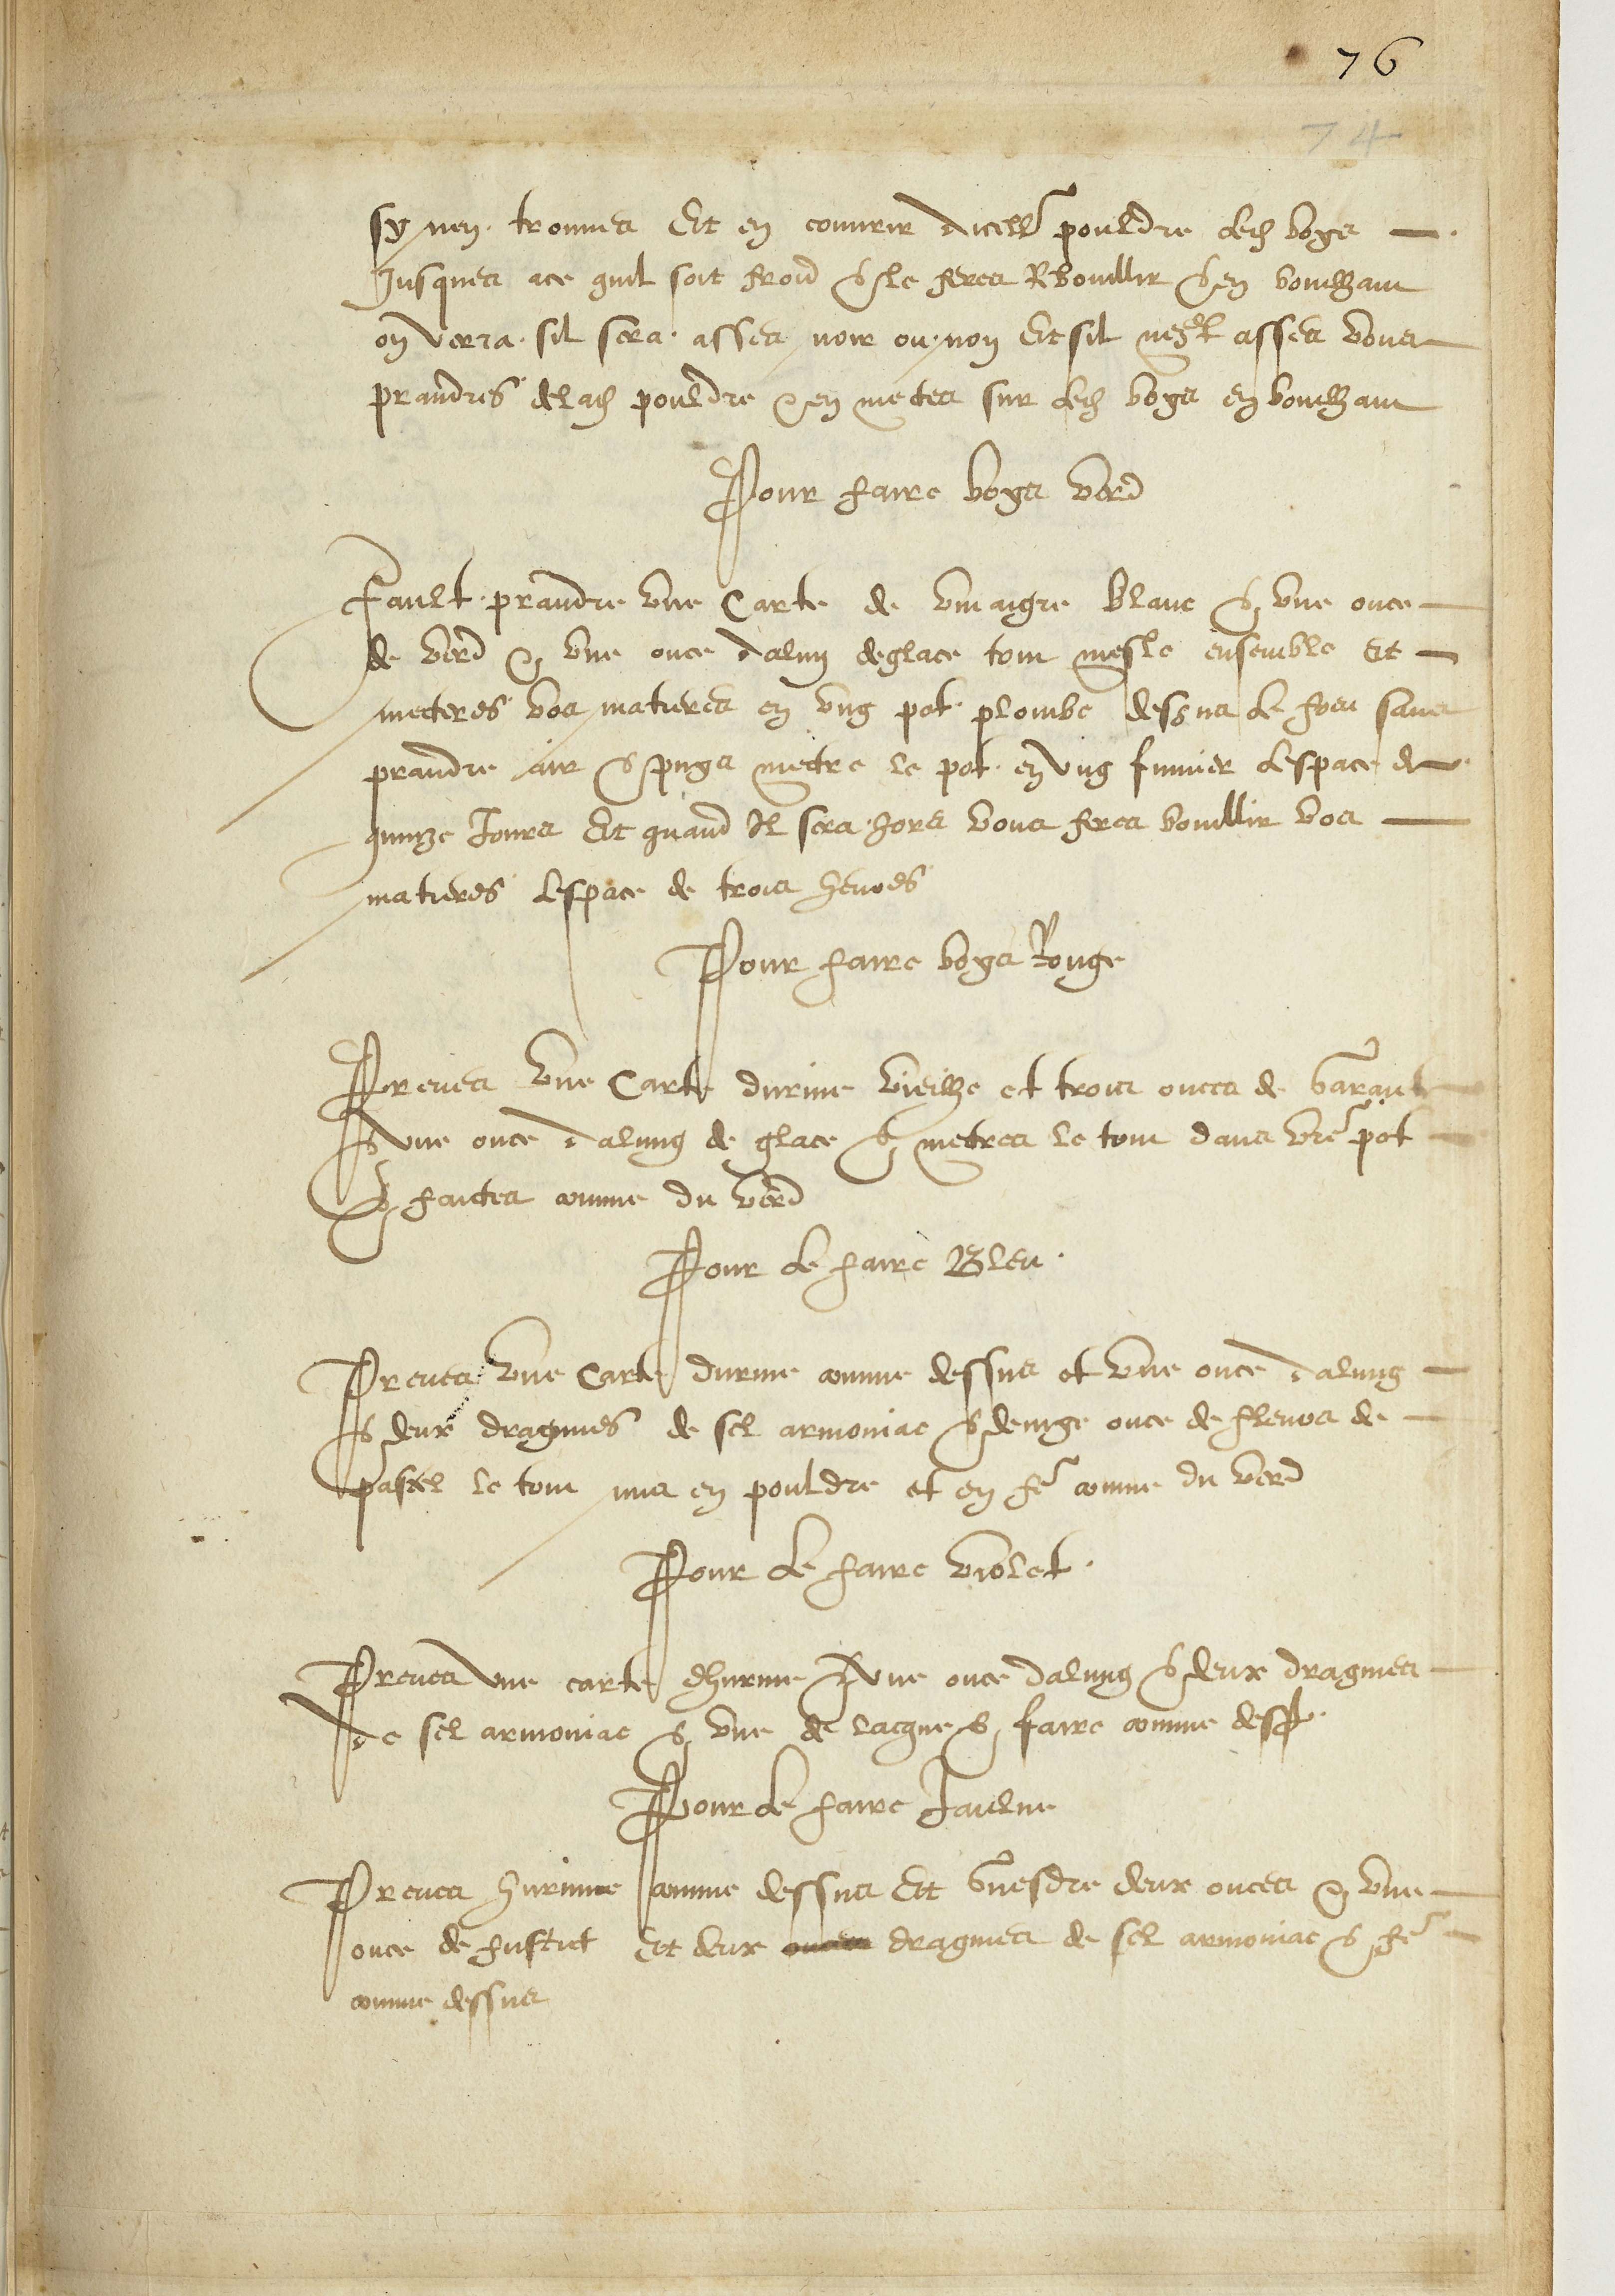 76
74
sy nen trouues Et en couurir dicelle pouldre led boys
Jusques ace quil soit froid & le feres Rebouillir & en bouilhant
on verra sil sera asses noir ou non Et sil nest asses vous
prandres de lad pouldre & en mectes sur led boys en bouilhant
Pour faire boys verd
Fault prandre vne Carte de vinaigre blanc & vne once
de verd & vne once dalun deglace tout mesle ensemble Et
mecteres vos matieres en vng pot plombe dessus le feu sans
prandre air & puys mectre le pot en vng fumier lespace de
quinze Jours Et quand Il sera hors vous feres bouillir vos
matieres lespace de trois heures
Pour faire boys Rouge
Prenes vne Carte durine vieilhe et trois onces de
& vne once dalung de glace & metres le tout dans vre pot
& faictes comme du verd
Pour le faire Bleu
Prenes vne Carte durine comme dessus et vne once dalung
& deux dragmes de sel armoniac & demye once de fleurs de
pastel le tout mis en pouldre et en fe comme du verd
Pour le faire violet
Prenes vne carte dhurine & vne once dalung & deux dragmes
de sel armoniac & vne de lacque & faire comme dess
Pour le faire Jaulne
Prenes hurinne comme dessus Et Guesdre deux onces & vne
once de fustet Et deux dragmes de sel armoniac & fe
comme dessus